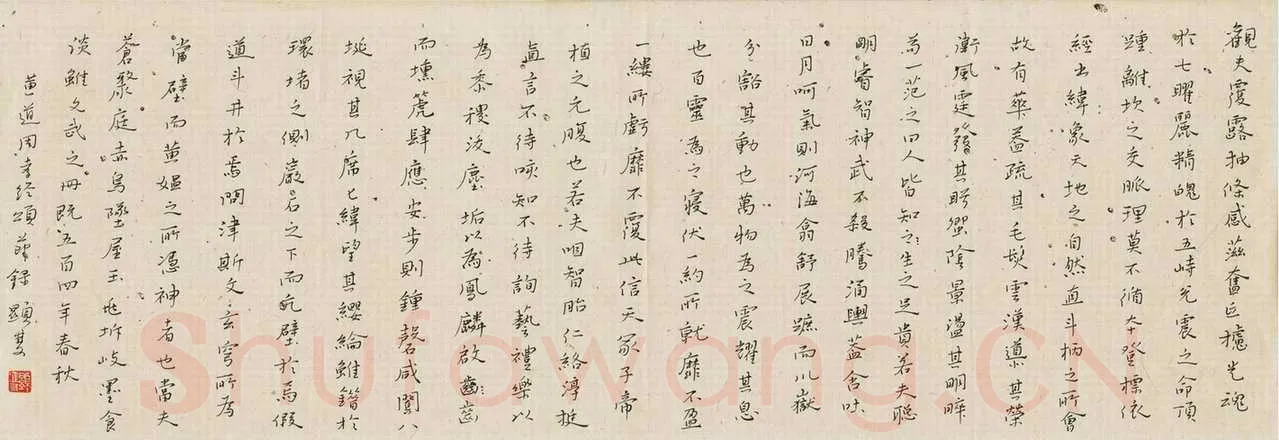 觀夫覆露抽條感滋奮巨櫨光魂
於七曜麗精魄於五峙兌震之命頂
踵離坎之交脈理莫不循本登標依
經出緯象天地之自然直斗柄之所會
故有華蓋疏其毛髮雲漢導其榮
衛風霆發其呼翕陰景盪其明晬
為一范之曰人皆知之生之足貴若夫聰
明睿智神武不殺騰涌輿蓋含吐
日月呵氣則河海翕舒展蹠而川嶽
分豁其動也萬物為之震耀其息
也百靈為之寢伏一約所就靡不盈
一縷所虧靡不覆此信天冢子帝
植之元腹也若夫咽智胎仁絡淳挺
直言不待咳知不待詢藝禮樂以
為黍稷浚塵垢以為鳳麟啟齒
而壎箎肆應安步則鍾磬咸闐八
埏視其几席七緯望其纓綸雖錯於
環堵之側巖石之下而瓦甓於焉假
道斗井於焉問津斯文玄穹所為
當璧而黃媼之所憑神者也當夫
蒼聚庭赤烏墜屋玉兆坼歧墨食
淡雖久哉之冊既五百四年春秋
黃道周孝經頌 節錄 顯斐
Shufawang.CN